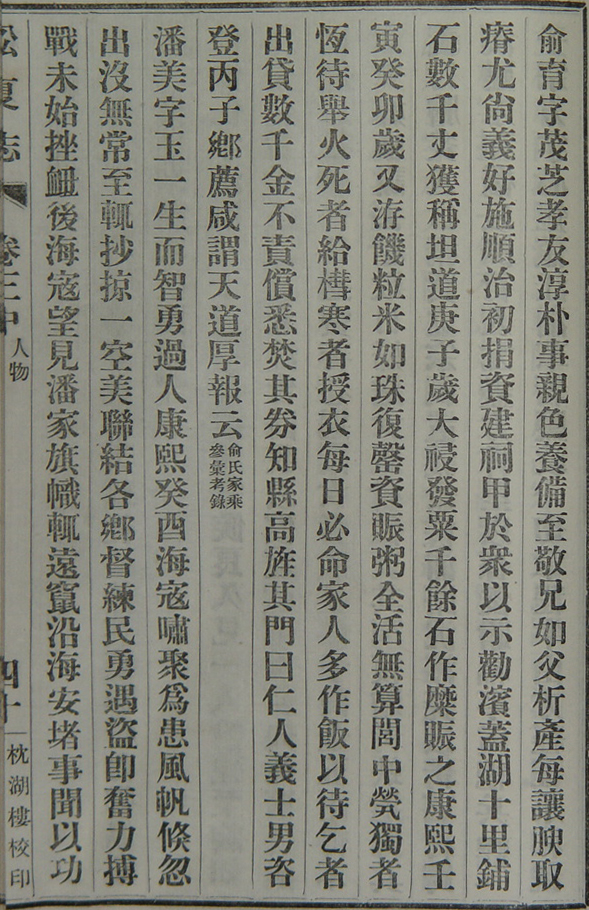 俞育字茂芝孝友淳朴事親色養備至敬兄如父析產每讓腴取
瘠尤尙義好施順治初捐資建祠甲於衆以示勸濱蓋湖十里鋪
石數千丈獲稱坦道庚子歲大祲發粟千餘石作糜賑之康熙壬
寅癸卯歲又洊饑粒米如珠復罄資賑粥全活無算閭中煢獨者
恆待舉火死者給槥寒者授衣每日必命家人多作飯以待乞者
出貸數千金不責償悉焚其券知縣高旌其門曰仁人義士男咨
登丙子鄉薦咸謂天道厚報云俞氏家乘
參彙考錄
潘美字玉一生而智勇過人康熙癸酉海寇嘯聚爲患風帆倏忽
出沒無常至輒抄掠一空美聯結各鄉督練民勇遇盜卽奮力搏
戰未始挫衂後海寇望見潘家旗幟輒遠竄沿海安堵事聞以功
松夏志
卷三中
人物
四十
枕湖樓校印